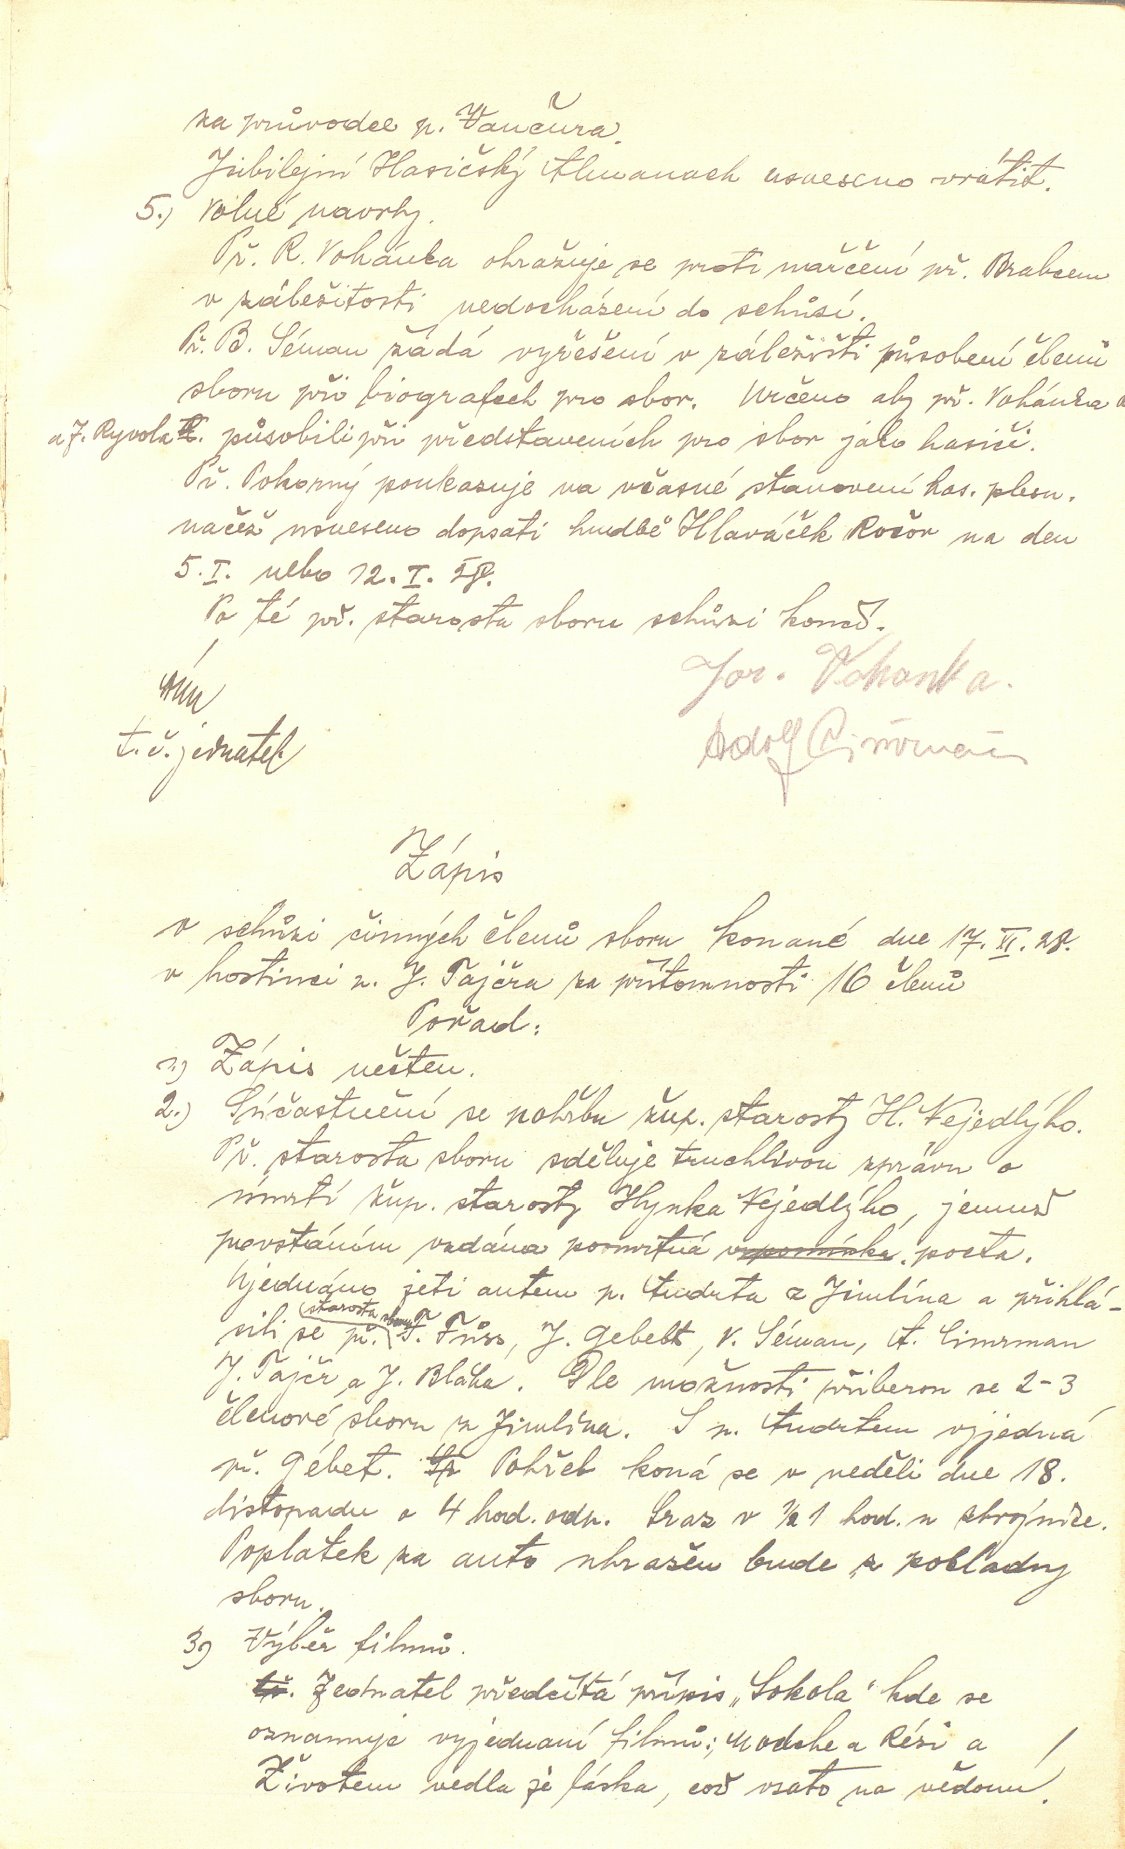 za průvodce p. Vančura.
Jubilejní Hasičský Almanach usneseno vrátit.
5.) Volné navrhy.
Př. R. Vohánka ohražuje se proti nařčení př. Brabcem
v záležitosti nedocházení do schůzí.
Př. B. Séman žádá vyřešení v záležišti působení členů
sboru při biografech pro sbor. Určeno aby př. Vohánka a
a J. Ryvola působili při představeních pro sbor jako hasiči.
Př. Pokorný poukazuje na včasné stanovení has. plesu.
načež usneseno dopsati hudbě Hlaváček Ročov na den
5. I. nebo 12. I. 29.
Po té př. starosta sboru schůzi končí.
Jos. Vohanka.
t. č. jednatel
Adolf
Zápis
v schůzi činných členů sboru konané dne 17. XI. 28.
v hostinci p. J. Tajčra za přítomnosti 16 členů
Pořad:
1) Zápis učšten.
2.) Súčastnění se pohřbu žup. starosty H. Nejedlýho.
Př. starosta sboru sděluje truchlivou zprávu o
úmrtí žup. starosty Hynka Nejedlýho, jemuž
povstáním vzdána posmrtná vzpomínka. pocta.
Ujednáno jeti autem p. Tudrta z Jimlína a přihlá-
sili se př. starosta sboru F. Füss, J. Gebelt, V. Séman, A. Cimrman
J. Tajčr a J. Bláha. Dle možnosti přiberou se 2-3
členové sboru z Jimlína. S p. Tudrtem vyjedná
př. Gébet. Pohřeb koná se v neděli dne 18.
listopadu o 4 hod. odp. Sraz v ½ 1 hod. u zbrojnice.
Poplatek za auto uhražen bude z pokladny
sboru.
3) Výběr filmů.
Jednatel předčítá přípis „Sokola" kde se
oznamuje vyjednaní filmů: a Rési a
Životem vedla je láska, což vzato na vědomí!